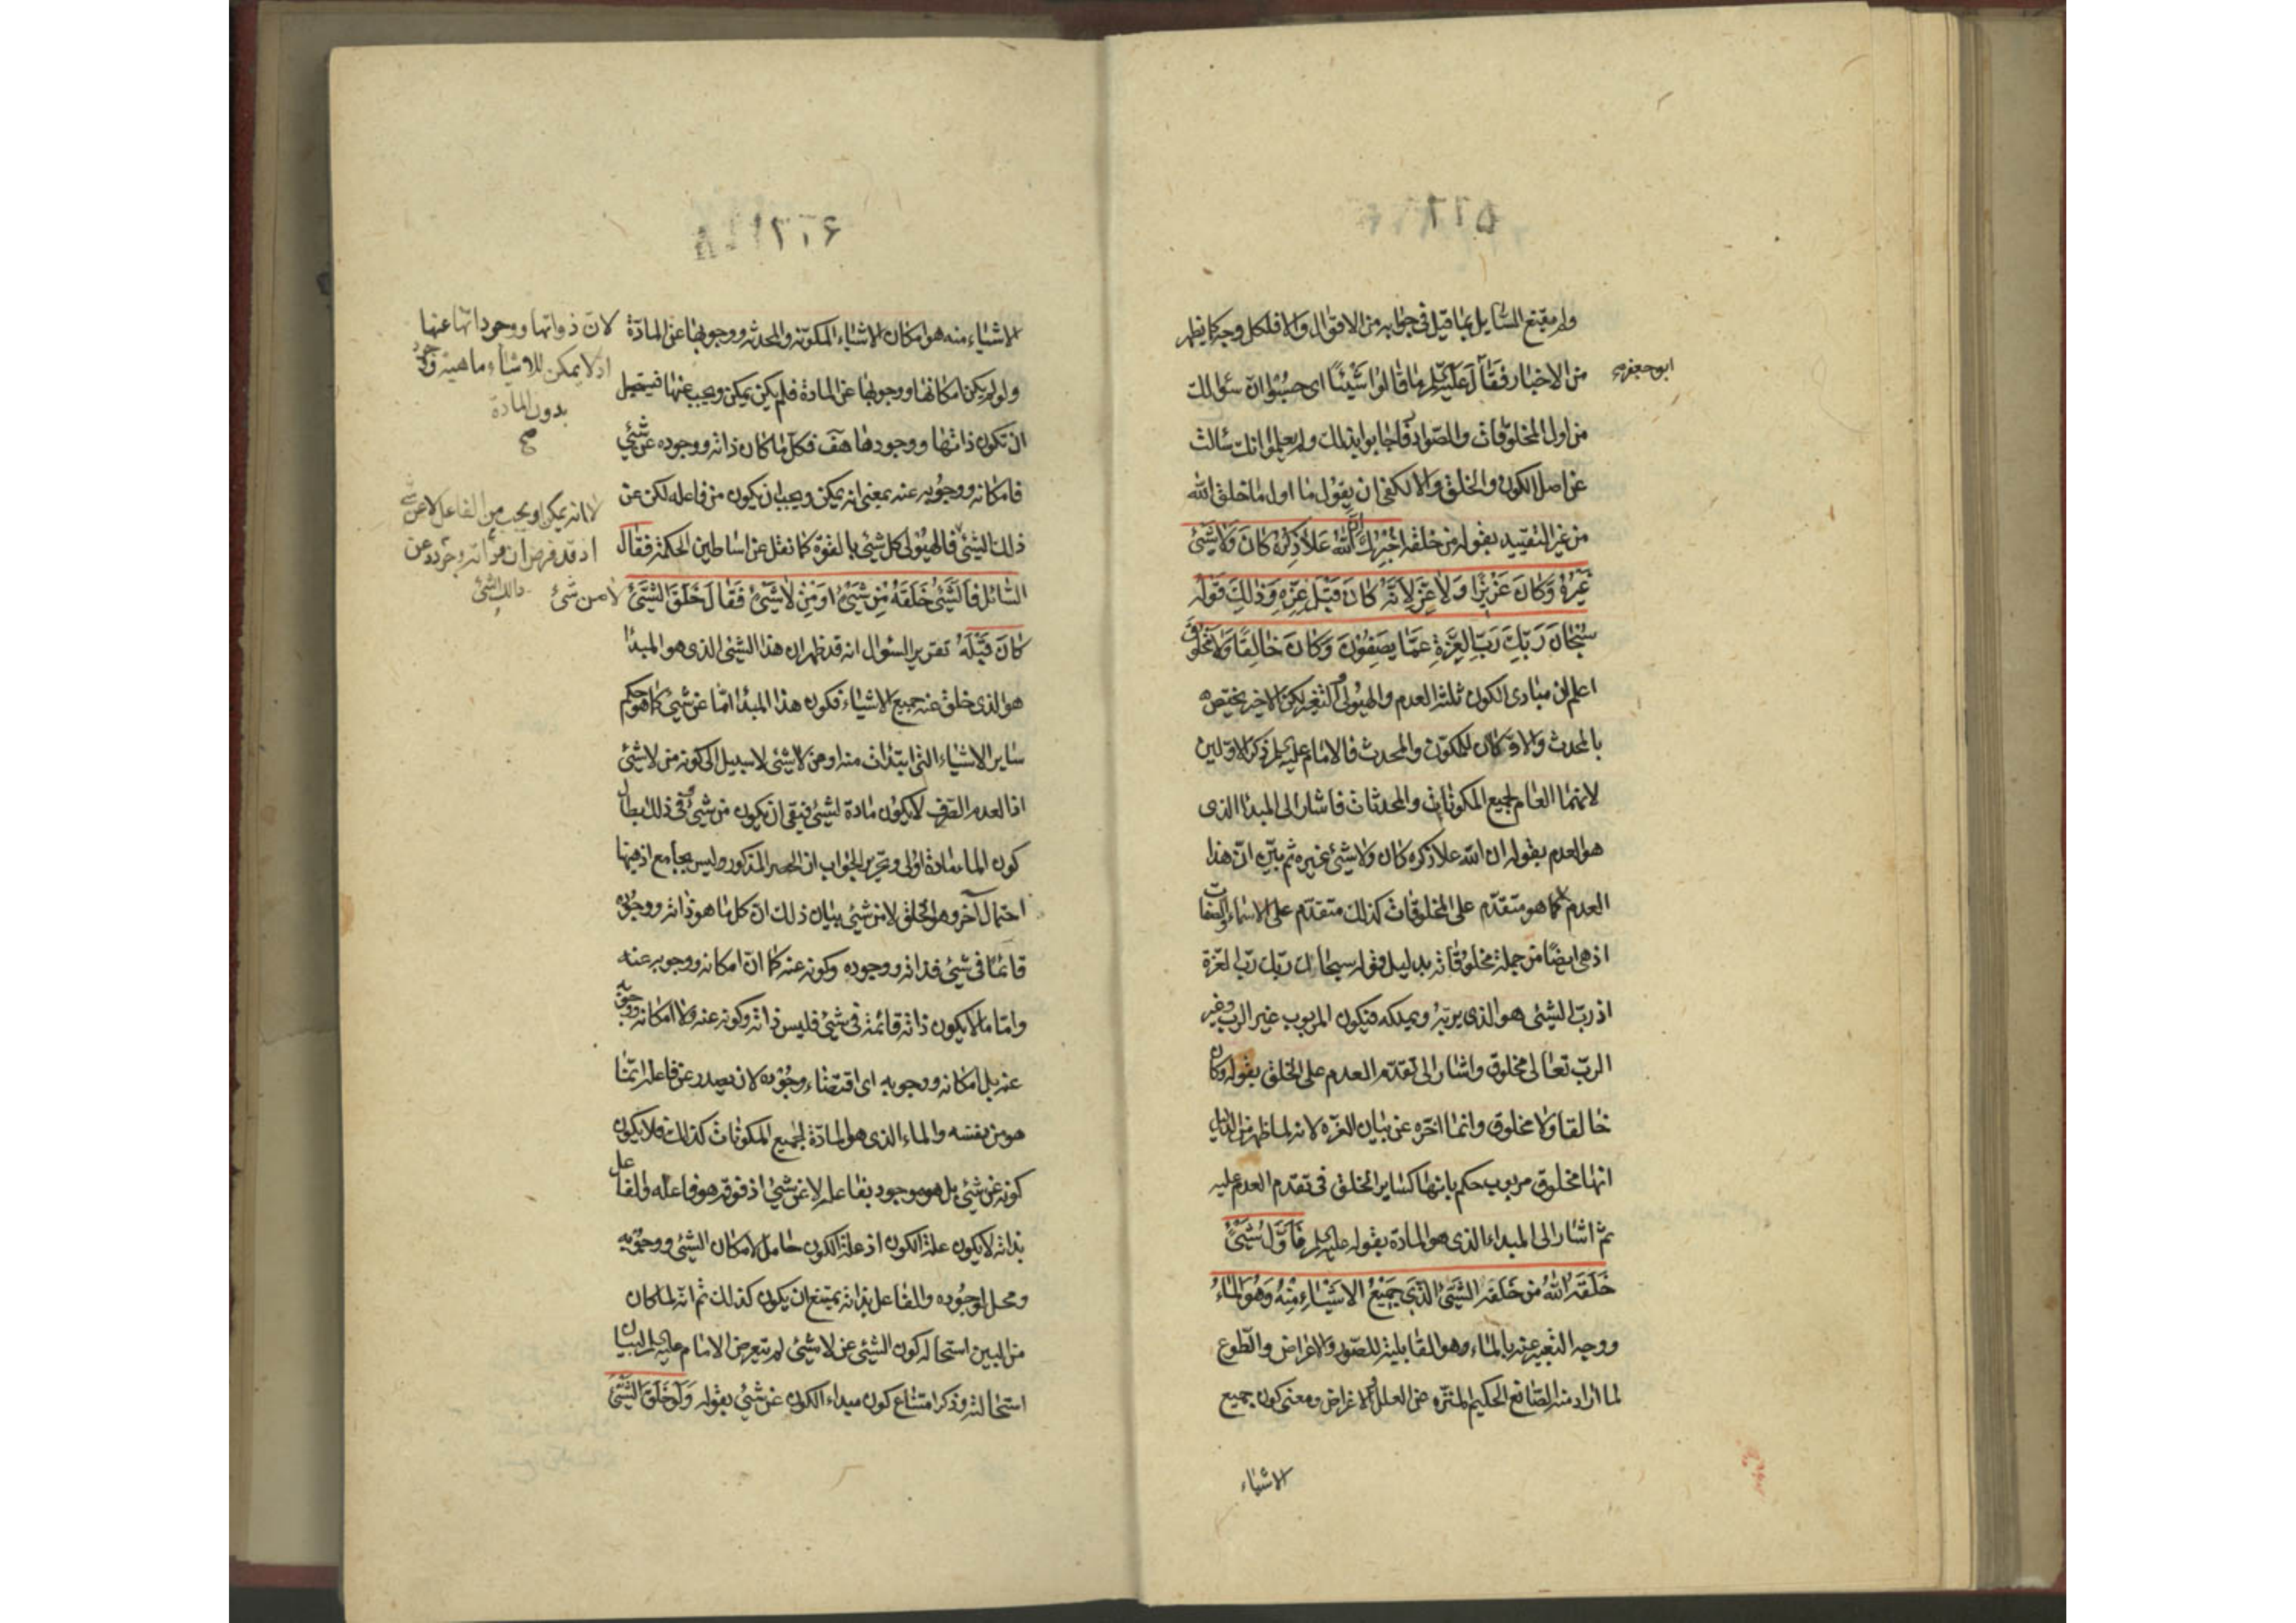 ولم يقنع السايل بما قيل فى جوابه من الاقوال والا فلكل وجه كما يظهر
من الاخبار فقال عليه السلم ما قالوا شيئا اى حسبوا ان سؤالك
ابو جعفر
من اول المخلوقات والصوادر فاجابوا بذلك ولم يعلموا انك سالت
عن اصل الكون والخلق والا لكفى ان يقول ما اول ما خلق الله
من غير التقييد بقوله من خلقه اخبرك ان الله علا ذكره كان ولا شيئ
غيره وكان عزيزا ولا عز لانه كان قبل عزه وذلك قوله
سبحان ربك رب العزة عما يصفون وكان خالقا ولا مخلوق
اعلم ان مبادى الكون ثلثة العدم والهيولى والتغير لكن الاخير يختص
بالمحدث والاولان للمكون والمحدث فالامام عليه السلم ذكر الاولين
لانهما العام لجميع المكونات والمحدثات فاشار الى المبدا الذى
هو العدم بقوله ان الله علا ذكره كان ولا شيئ غيره ثم بين ان هذا
العدم كما هو متقدم على المخلوقات كذلك متقدم على الاسماء والصفات
اذ هى ايضا من جملة مخلوقاته بدليل قوله سبحان ربك رب العزة
اذ رب الشيئ هو الذى يربه ويملكه فيكون المربوب غير الرب وغير
الرب تعالى مخلوق واشار الى تقدم العدم على الخلق بقوله وكان
خالقا ولا مخلوق وانما اخره عن بيان العزة لانه لما ظهر من الدليل
انها مخلوق مربوب حكم بانها كساير الخلق فى تقدم العدم عليه
ثم اشار الى المبداء الذى هو المادة بقوله عليه السلم فاول شيئ
خلقه الله من خلقه الشيئ الذى جميع الاشياء منه وهو الماء
ووجه التعبير عنه بالماء وهو القابلية للصور والاعراض والطوع
لما اراد منه الصانع الحكيم المنزه عن العلل والاغراض ومعنى كون جميع
الاشياء
الاشياء منه هو امكان الاشياء المكونة والمحدثة ووجوبها عن المادة
لان ذواتها ووجوداتها عنها
اذ لا يمكن للاشياء ماهية ووجود
بدون المادة
صح
ولو لم يكن امكانها ووجوبها عن المادة فلم يكن يمكن ويجب عنها فيستحيل
ان تكون ذاتها ووجودها هف فكل ما كان ذاته ووجوده عن شيئ
فامكانه ووجوبه عنه بمعنى انه يمكن ويجب ان يكون من فاعله لكن عن
لا انه يمكن او يجب من الفاعل لا عن شيئ
اذ قد فرض ان ذاته ووجوده عن
ذالك الشيئ لا من شيئ
ذلك الشيئ فالهيولى كل شيئ بالقوة كما نقل عن اساطين الحكمة فقال
السائل فالشيئ خلقه من شيئ او من لا شيئ فقال خلق الشيئ
كان قبله تقرير السؤال انه قد ظهر ان هذا الشيئ الذى هو المبدا
هو الذى خلق عنه جميع الاشياء فكون هذا المبدا اما عن شيئ كما هو حكم
ساير الاشياء التى ابتدات منه او من لا شيئ لا سبيل الى كونه من لا شيئ
اذ العدم الصرف لا يكون مادة لشيئ فبقى ان يكون من شيئ وفى ذلك بطال
كون الماء مادة اولى وتحرير الجواب ان الحصر المذكور وليس بجامع اذ هيهنا
احتمال آخر وهو الخلق لا من شيئ بيان ذلك ان كل ما هو ذاته ووجوده
قائما فى شيئ فذاته ووجوده وكونه عنه كما ان امكانه ووجوبه عنه
واما ما لا يكون ذاته قائمة فى شيئ فليس ذاته وكونه عنه ولا امكانه ووجوبه
عنه بل امكانه ووجوبه اى اقتضاء وجوده لان يصدر عن فاعله انما
هو من نفسه والماء الذى هو المادة لجميع المكونات كذلك فلا يكون
كونه عن شيئ بل هو موجود بفاعله لا عن شيئ اذ فوقه هو فاعله والفاعل
بذاته لا يكون علة الكون اذ علة الكون حامل لامكان الشيئ ووجوبه
ومحل لوجوده والفاعل بذاته يمتنع ان يكون كذلك ثم انه لما كان
من البين استحالة كون الشيئ عن لا شيئ لم يتعرض الامام عليه السلم لبيان
استحالته وذكر امتناع كون مبداء الكون عن شيئ بقوله ولو خلق الشيئ